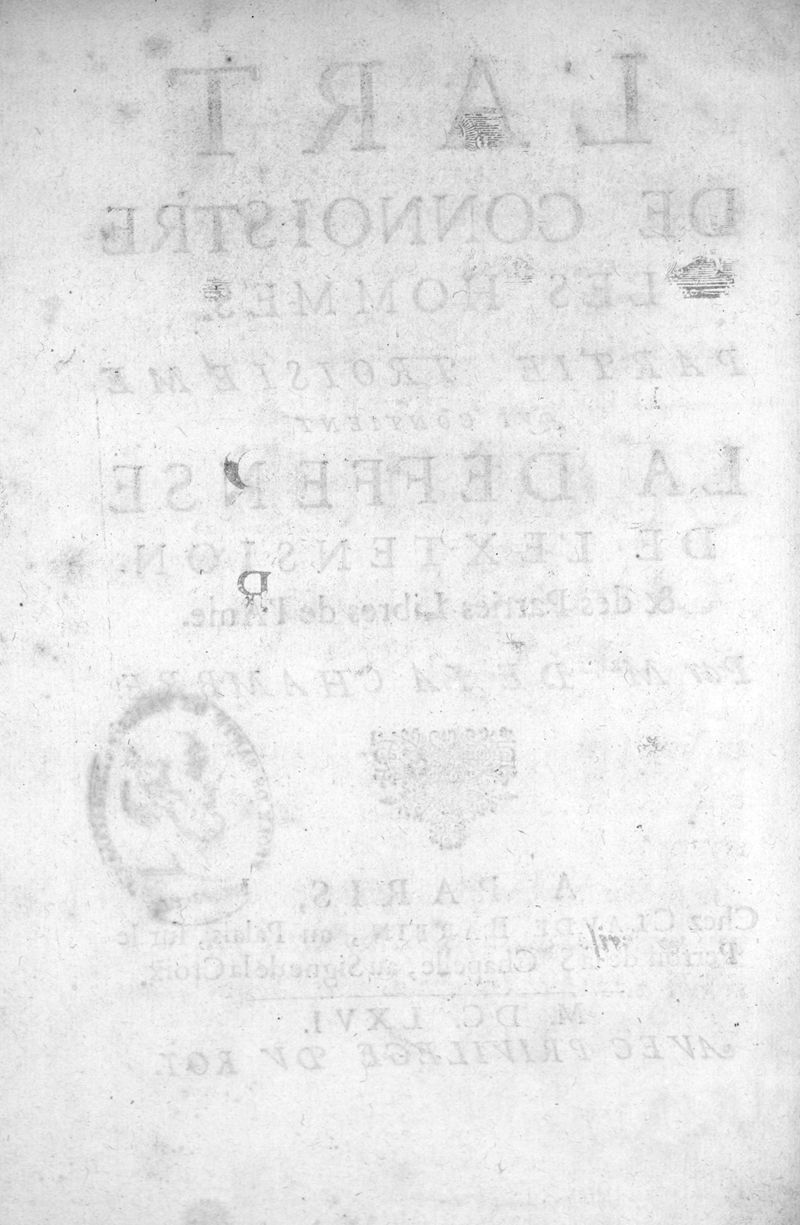 L'ART
DE CONNOISTRE
LES HOMMES.
PARTIE TROISIEME
QVI CONTIENT
LA DEFFENSE
DE L'EXTENSION
& des Parties Libres de l'Ame.
Par Mr DE LA CHAMBRE
A PARIS,
Chez CLAVDE BARBIN, au Palais, sur le
Perron de la Ste Chapelle, au Signe de la Croix.
M. DC. LXVI.
AVEC PRIVILEGE DV ROY.